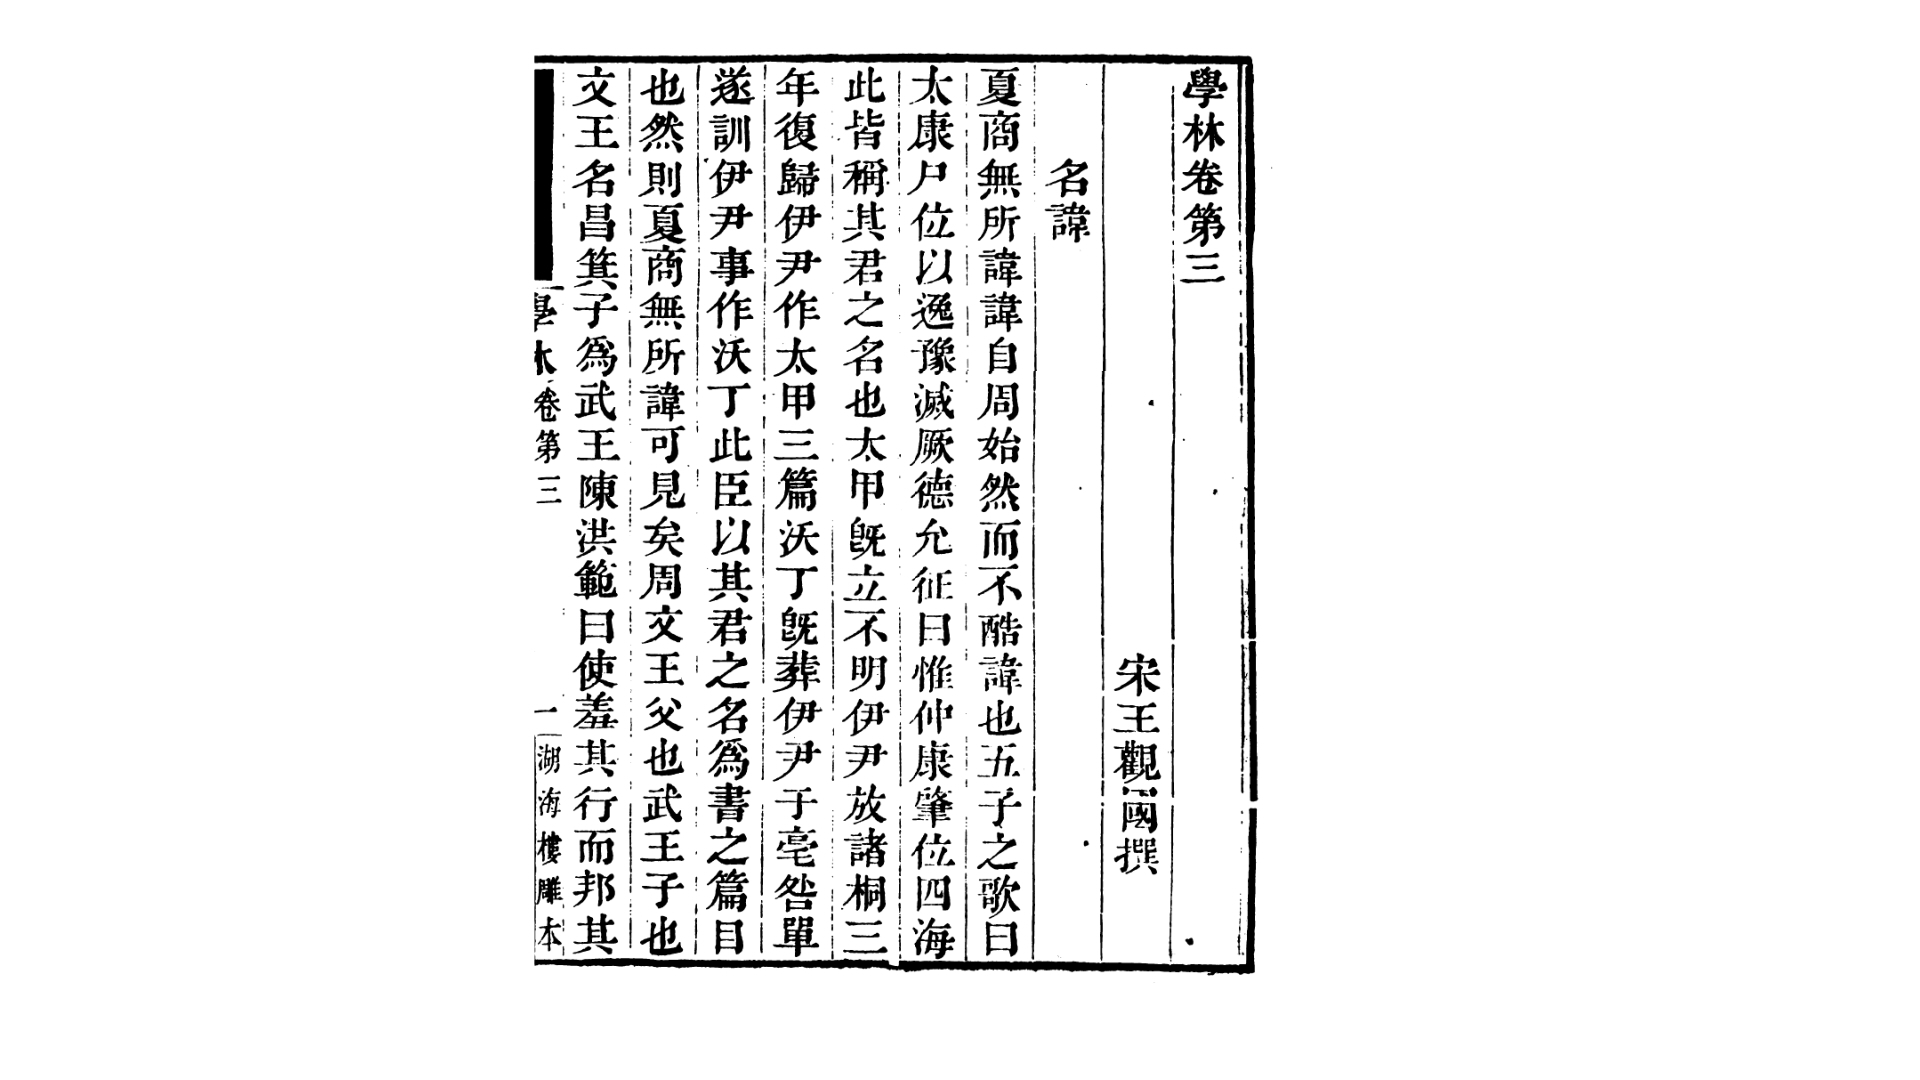 學林卷第三
宋王觀國撰
名諱
夏商無所諱諱自周始然而不酷諱也五子之歌曰
太康尸位以逸豫滅厥德允征曰惟仲康肇位四海
此皆稱其君之名也太甲旣立不明伊尹放諸桐三
年復歸伊尹作太甲三篇沃丁旣葬伊尹于亳咎單
遂訓伊尹事作沃丁此臣以其君之名爲書之篇目
也然則夏商無所諱可見矣周文王父也武王子也
文王名昌箕子爲武王陳洪範曰使羞其行而邦其
學林卷第三 一 湖海樓雕本